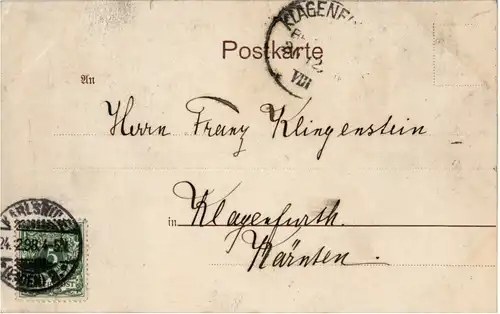 Postkarte
KLAGENF
VIII
An
Herrn Franz Klingenstein
in Klagenfurth.
Kärnten.
KARLSRUHE
24. 2.98. 4-5N
(BADEN)
5